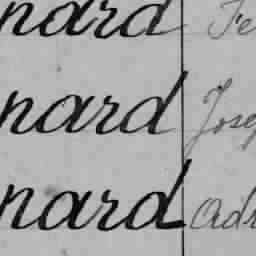 nard Fe
nard Jose
nard Adr